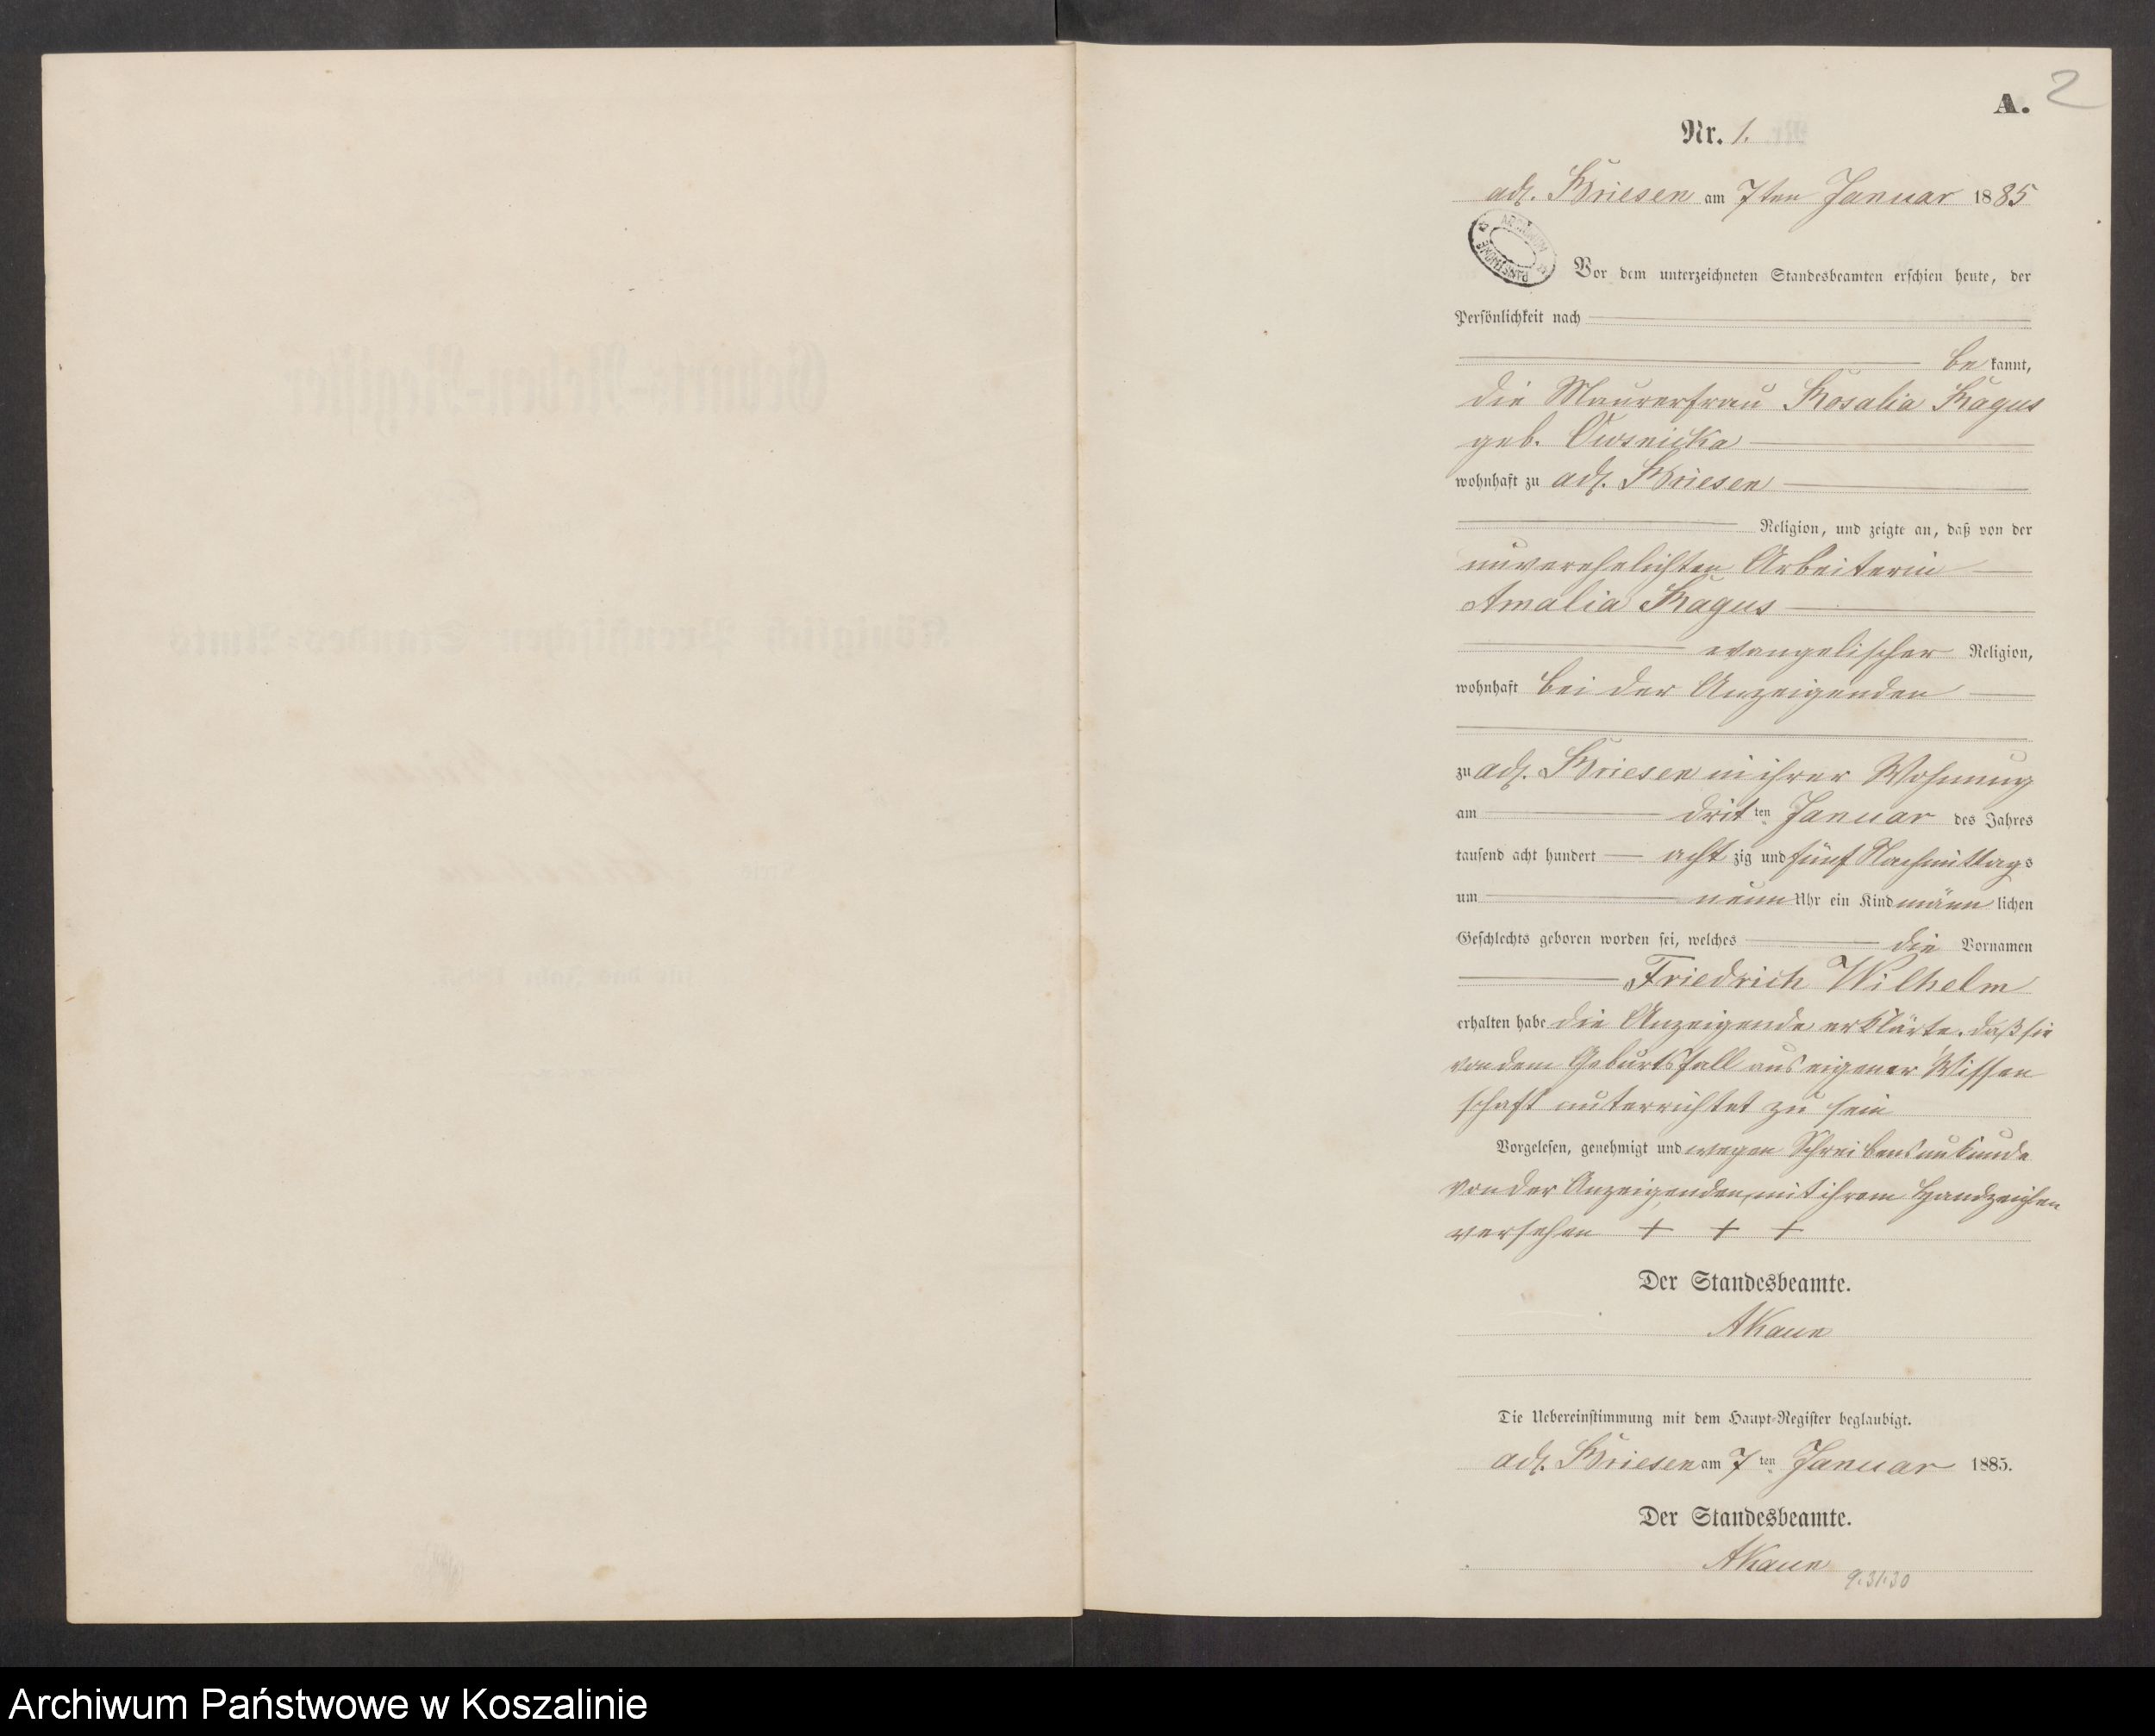 A. 2
Nr. 1.
adl. Briesen am 7ten Januar 1885
ARCHIWUM PAŃSTWOWE
Vor dem unterzeichneten Standesbeamten erschien heute, der
Persönlichkeit nach
bekannt,
die Maurerfrau Rosalia Ragus
geb. Owsnicka
wohnhaft zu adl. Briesen
Religion, und zeigte an, daß von der
unverehelichten Arbeiterin
Amalia Ragus
evangelischer Religion,
wohnhaft bei der Anzeigenden
zu adl. Briesen in ihrer Wohnung
am dritten Januar des Jahres
tausend acht hundert achtzig und fünf Nachmittags
um neun Uhr ein Kind männlichen
Geschlechts geboren worden sei, welches die Vornamen
Friedrich Wilhelm
erhalten habe die Anzeigende erklärte, daß sie
von dem Geburtsfall aus eigener Wissen
schaft unterrichtet zu sein
Vorgelesen, genehmigt und wegen Schreibensunkunde
von der Anzeigenden mit ihrem Handzeichen
versehen + + +
Der Standesbeamte.
AKaun
Die Uebereinstimmung mit dem Haupt-Register beglaubigt.
adl. Briesen am 7ten Januar 1885.
Der Standesbeamte.
AKaun
9.31.30
Archiwum Państwowe w Koszalinie